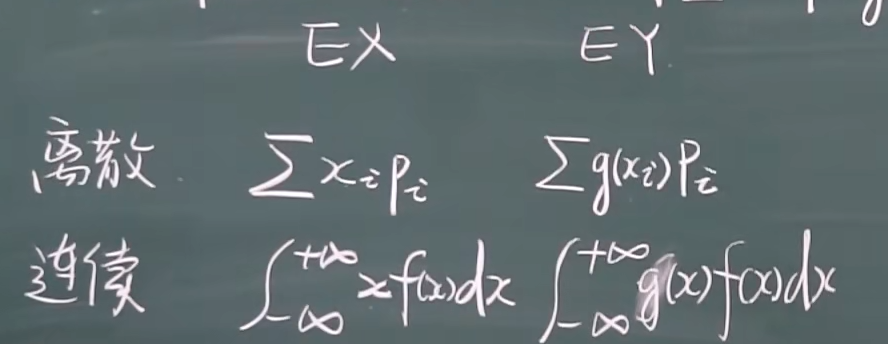 EX EY
离散 ∑xᵢpᵢ ∑g(xᵢ)Pᵢ
连续 ∫₋∞⁺∞ xf(x)dx ∫₋∞⁺∞ g(x)f(x)dx